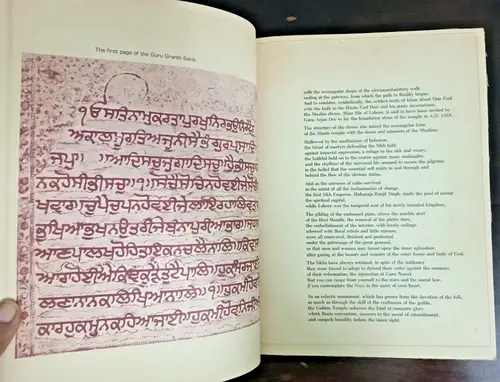 The first page of the Guru Granth Sahib
ੴ ਸਤਿਨਾਮੁਕਰਤਾਪੁਰਖੁਨਿਰਭਉਨਿਰਵੈਰੁ
ਅਕਾਲਮੂਰਤਿਅਜੂਨੀਸੈਭੰਗੁਰਪ੍ਰਸਾਦਿ
ਜਪੁ॥ ॥ਆਦਿਸਚੁਜੁਗਾਦਿਸਚੁ॥ਹੈਭੀਸਚੁਨਾ
ਨਕਹੋਸੀਭੀਸਚੁ॥੧॥ਸੋਚੈਸੋਚਿਨਹੋਵਈਜੇਸੋਚੀਲ
ਖਵਾਰ॥ਚੁਪੈਚੁਪਨਹੋਵਈਜੇਲਾਇਰਹਾਲਿਵਤਾਰ॥
ਭੁਖਿਆਭੁਖਨਉਤਰੀਜੇਬੰਨਾਪੁਰੀਆਭਾਰ॥ਸਹਸਸਿ
ਆਣਪਾਲਖਹੋਹਿਤਇਕਨਚਲੈਨਾਲਿ॥ਕਿਵਸਚਿ
ਆਰਾਹੋਈਐਕਿਵਕੂੜੈਤੁਟੈਪਾਲਿ॥ਹੁਕਮਿਰਜਾਈਚ
ਲਣਾਨਾਨਕਲਿਖਿਆਨਾਲਿ॥੧॥ਹੁਕਮੀਹੋਵਨਿਆ
ਕਾਰਹੁਕਮੁਨਕਹਿਆਜਾਈ॥ਹੁਕਮੀਹੋਵਨਿਜੀਅ
with the rectangular shape of the circumambulatory walk
ending at the gateway, from which the path to finality began.
And to combine, symbolically, the soldest tenth of Islam about One God
with the faith in the Hindu God Hari and his many incarnations,
the Muslim divine, Mian Mir of Lahore, is said to have been invited by
Guru Arjan Dev to lay the foundation stone of the temple in A.D. 1589.
The structure of the shrine also united the rectangular form
of the Hindu temple with the dome and minarets of the Muslims.
Hallowed by the meditations of believers,
the blood of martyrs defending the Sikh faith
against imperial oppression, a refuge to the sick and weary,
the faithful held on to the centre against many onslaughts
and the rhythms of the universal life seemed to secure the pilgrims
in the belief that the essential self exists in and through and
behind the flux of the obvious states.
And in the oneness of calm survival
in the midst of all the inclemencies of change,
the first Sikh Emperor, Maharaja Ranjit Singh, made the pool of nectar
the spiritual capital,
while Lahore was the temporal seat of his newly founded kingdom.
The gilding of the embossed plate, above the marble skirt
of the Hari Mandir, the renewal of the pietra dura,
the embellishment of the interior, with lovely ceilings,
adorned with floral reliefs and little mirrors,
were all renovated, finished and perfected
under the patronage of the great general,
so that men and women may brood upon the inner splendour
after gazing at the beauty and wonder of the outer home and body of God.
The Sikhs have always retained, in spite of the militancy
they were forced to adopt to defend their order against the enemies
of their reformation, the injunction of Guru Nanak
that you can range from yourself to the stars and the moral law,
if you contemplate the Nam in the quiet of your heart.
As an eclectic monument, which has grown from the devotion of the folk,
as much as through the skill of the craftsmen of the guilds,
the Golden Temple achieves the kind of romantic glory
which Beats convention, answers to the moral of astonishment,
and compels humility before the inner sight.